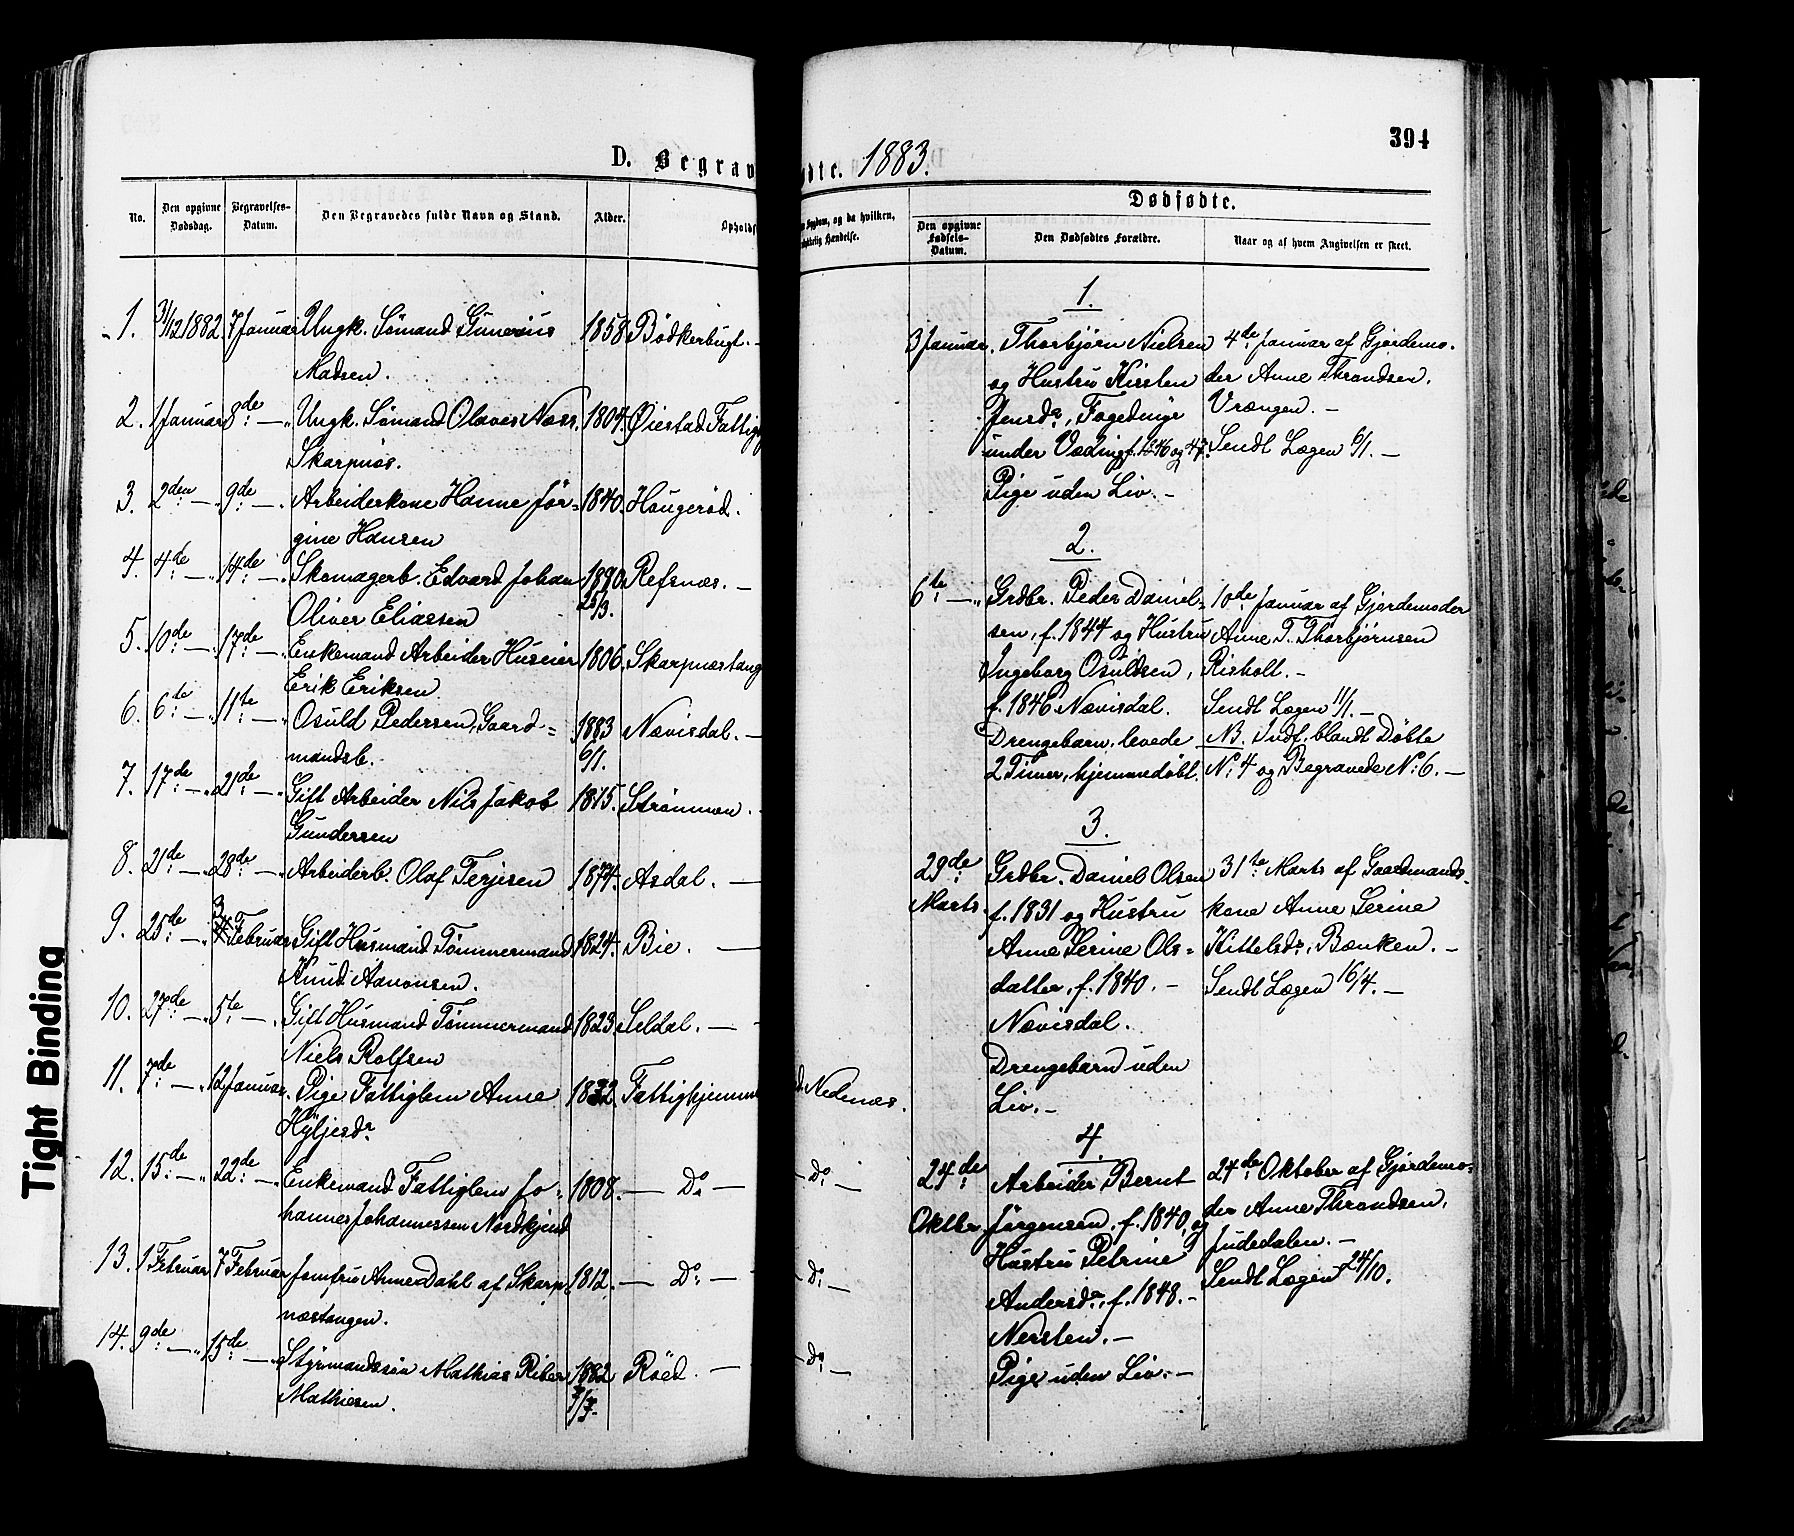 394
D. Begrav
dte. 1883.
No.
Den opgivne Dødsdag.
Begravelses-Datum.
Den Begravedes fulde Navn og Stand.
Alder.
Opholds
Sygdom, og da hvilken,
Hændelse.
Dødfødte.
Den opgivne Fødsels-Datum.
Den Dødfødtes Forældre.
Naar og af hvem Angivelsen er skeet.
1. 31/12 1882 7 Januar Ungk. Sømand Gunerius 1858. Bødkerbugt. -
Madsen.
2. 1 Januar 8de — " Ungk. Sømand Olaves Næss. 1804. Øiestad Fattig
Skarpnæs.
3. 2den — " 9de — " Arbeiderkone Hanne Jør= 1840. Haugerød.
gine Hansen
4. 4de — " 14de — " Skomagerb. Edvard Johan 1890 Refsnæs. -
Oliver Eliassen 25/3.
5. 10de — " 17de — " Enkemand Arbeider Huseier 1806. Skarpnæstang
Erik Eriksen
6. 6te — " 11te — " Osuld Pedersen, Gaard= 1883 Nævisdal. -
mandsb. 6/1.
7. 17de — " 21de — " Gift Arbeider Nils Jakob 1815. Strømmen.
Gundersen
8. 21de — 28de — " Arbeiderb. Olaf Terjesen 1874. Asdal. —
9. 25de — " 3 Februar Gift Husmand Tømmermand 1824. Bie. —
Knud Aanonsen.
10. 27de — " 5te — " Gift Husmand Tømmermand 1823 Seldal. —
Niels Rolfsen
11. 7de — " 12 Januar. Pige Fattiglem Anne 1832 Fattighjemme
Hyljesdr
12. 15de — " 22de — " Enkemand Fattiglem Jo= 1808. — Do —
hannes Johannessen Nordkjend
13. 1 Februar 7 Februar Jomfru Anne Dahl af Skarp= 1812. — Do —
næstangen.
14. 9de — " 15de — " Styrmandssøn Mathias Riber 1882 Røed. —
Mathiesen.
Nedenæs.
- Do —
- Do —
- Do —
1.
3 Januar. Thorbjørn Nielsen
og Hustru Kirsten
Jensdr, Fogedmyr
under Veding f. 1846 og 47.
Pige uden Liv. -
4de Januar af Gjordemo=
der Anne Throndsen.
Vrængen. -
Sendt Lægen 6/1. -
2.
6te — " Grdbr. Peder Daniel=
sen, f. 1844 og Hustru
Ingeborg Osuldsen,
f. 1846 Nævisdal.
Drengebarn, levede
2 Timer, hjemmedøbt.
10de Januar af Gjordemoder
Anne T. Thorbjørnsen
Risholt. -
Sendt Lægen 11/1. -
NB. Indt. blandt Døbte
No: 4 og Begravede No: 6. -
3.
29de Marts. Grdbr. Daniel Olsen
f. 1831 og Hustru
Anne Serine Ols=
datter, f. 1840. -
Nævisdal.
Drengebarn uden
Liv. -
31te Marts af Gaardmands=
kone Anne Serine
Kittelsdr, Bænken. -
Sendt Lægen 16/4. -
4.
24de Oktbr. Arbeider Bernt
Jørgensen, f. 1840, og
Hustru Petrine
Andersdr, f. 1848. -
Nersten. -
Pige uden Liv. -
24de Oktober af Gjordemo=
der Anne Throndsen,
Judedalen. -
Sendt Lægen 24/10.
Tight Binding